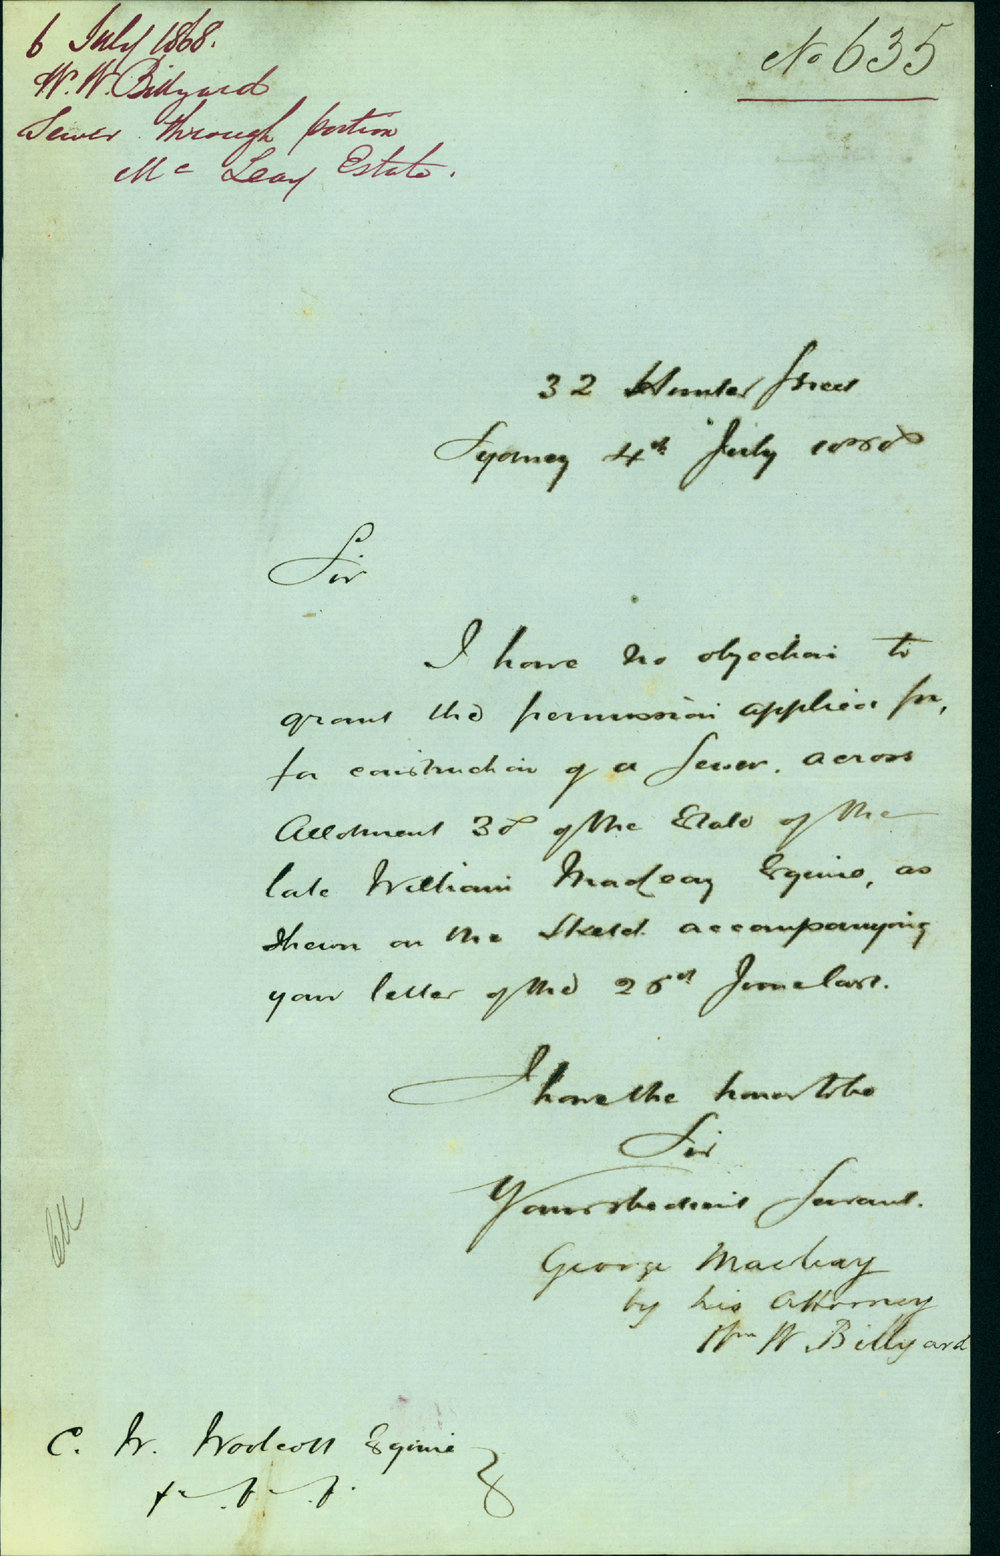 6 July 1868.
W. W. Billyard
Sewer through portion
Mc Leay Estate.
No 635
32 Hunter Street
Sydney 4th July 1868
Sir
I have no objection to
grant the permission applied for,
for construction of a Sewer, across
Allotment 38 of the Estate of the
late William Macleay Esquire, as
shewn on the Sketch accompanying
your letter of the 25th June last.
I have the honor to be
Sir
Your obedient Servant.
George Macleay
by his Attorney
Wm W. Billyard
C. W. Woolcott Esquire